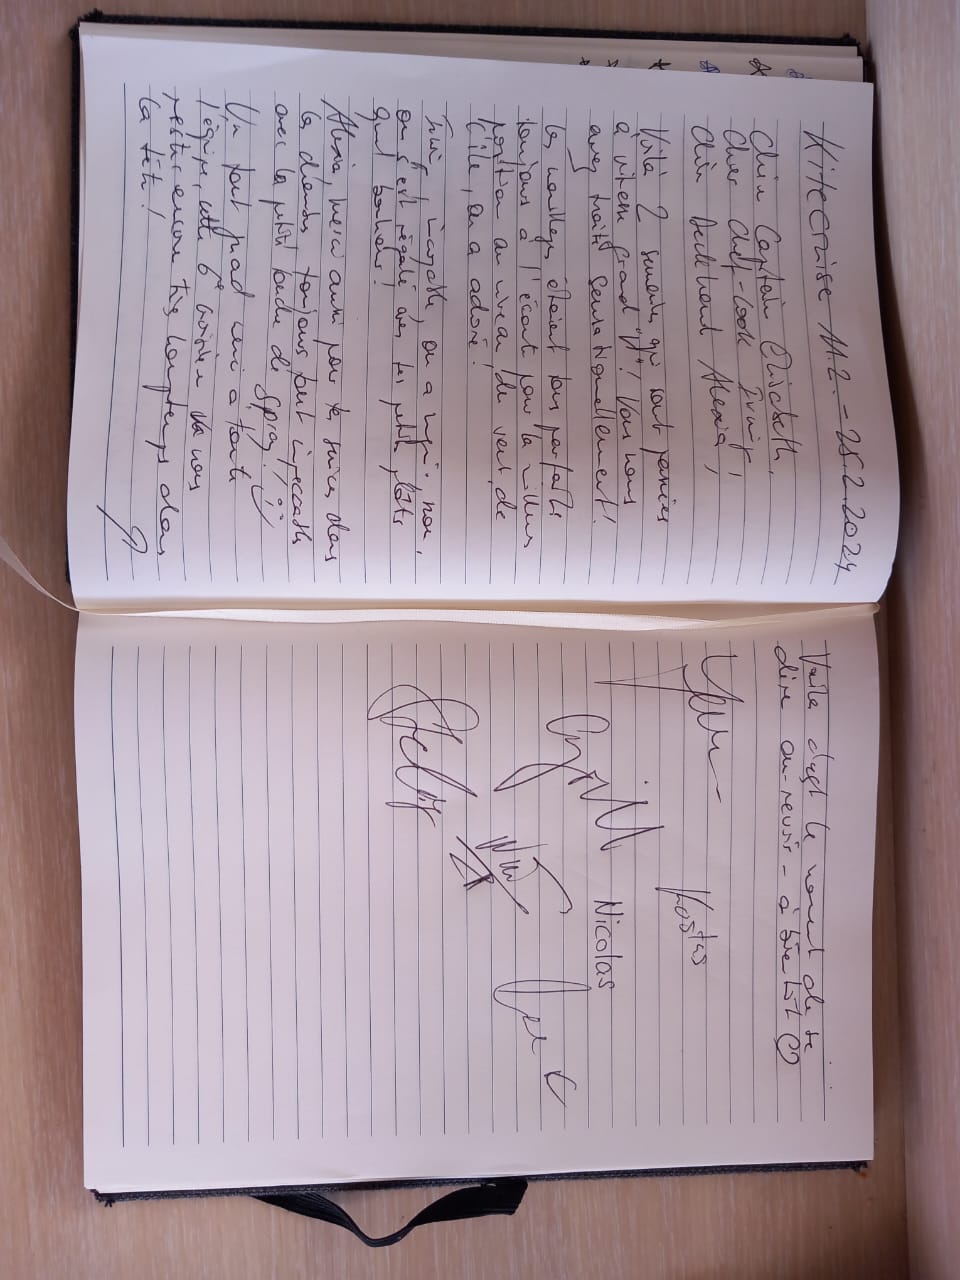 Kitecruise 11.2. - 25.2.2024
Chère Captain Elisabeth,
Cher chef-cook
Chère Alexia,
Voilà 2 semaines qui sont passées
à vitesse grand "V"! Vous nous
avez traité sensationnellement!
Les étaient tous parfaits
toujours à l'écoute pour la meilleure
position au niveau du vent, de
l'île, on a adoré!
incroyable, on a, non,
on s'est régalé avec tes petits plats
quel bonheur!
Alexia, merci aussi pour te services dans
la, toujours tout impeccable
avec la petite de Spray! :)
Un tout grand merci à toute
l'équipe, cette 6e croisière va nous
rester encore très longtemps dans
la tête!
Voilà le moment de se
dire au-revoir - à bientôt
Kostas
Cyrill
Nicolas